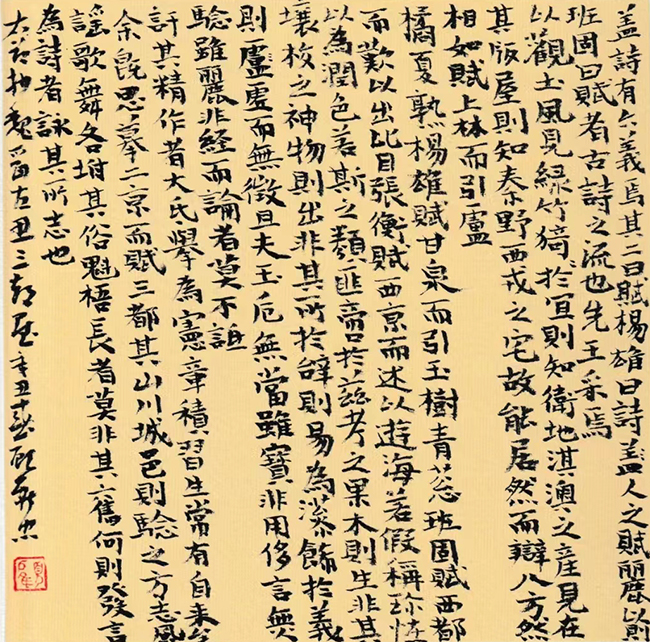 盖詩有六義焉其二曰賦楊雄曰詩盖人之賦麗以則
班固曰賦者古詩之流也先王采焉
以觀土風見緑竹猗於宜則知衛地淇澳之産見在
其版屋則知秦野西戎之宅故能居然而辯八方然
相如賦上林而引盧
橘夏熟楊雄賦甘泉而引玉樹青葱班固賦西都
而歎以出比目張衡賦西京而述以遊海若假稱珍怪
以為潤色若斯之類匪啻於兹考之果木則生非其
壤校之神物則出非其所於辭則易為藻飾於義
則盧虛而無徵且夫玉卮無當雖寶非用侈言無
驗雖麗非經而論者莫不詆
訐其精作者大氏舉為憲章積習生常有自来矣
余既思摹二京而賦三都其山川城邑則驗之方志風
謡歌舞各坿其俗魁梧長者莫非其六舊何則發言
為詩者詠其所志也
三都 辛丑春